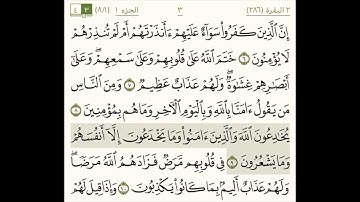 ٢ البقرة (٢٨٦) ٣ الجزء ١ (٨/١) ٣ ٤
إِنَّ ٱلَّذِينَ كَفَرُوا۟ سَوَآءٌ عَلَيْهِمْ ءَأَنذَرْتَهُمْ أَمْ لَمْ تُنذِرْهُمْ
لَا يُؤْمِنُونَ ٦ خَتَمَ ٱللَّهُ عَلَىٰ قُلُوبِهِمْ وَعَلَىٰ سَمْعِهِمْ ۖ وَعَلَىٰٓ
أَبْصَٰرِهِمْ غِشَٰوَةٌ ۖ وَلَهُمْ عَذَابٌ عَظِيمٌ ٧ وَمِنَ ٱلنَّاسِ
مَن يَقُولُ ءَامَنَّا بِٱللَّهِ وَبِٱلْيَوْمِ ٱلْءَاخِرِ وَمَا هُم بِمُؤْمِنِينَ ٨
يُخَٰدِعُونَ ٱللَّهَ وَٱلَّذِينَ ءَامَنُوا۟ وَمَا يَخْدَعُونَ إِلَّآ أَنفُسَهُمْ
وَمَا يَشْعُرُونَ ٩ فِى قُلُوبِهِم مَّرَضٌ فَزَادَهُمُ ٱللَّهُ مَرَضًا ۖ
وَلَهُمْ عَذَابٌ أَلِيمٌۢ بِمَا كَانُوا۟ يَكْذِبُونَ ١٠ وَإِذَا قِيلَ لَهُمْ